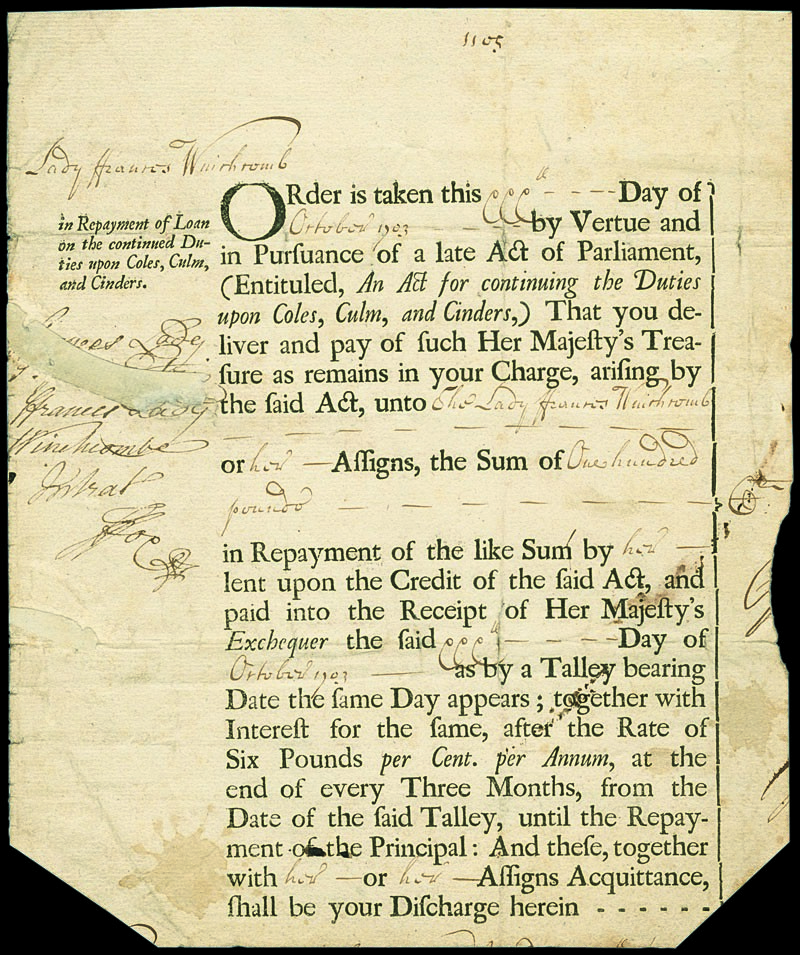 1105
Lady ffrances Winchcomb
in Repayment of Loan
on the continued Du-
ties upon Coles, Culm,
and Cinders.
Lady
ffrances Lady
Winchcombe
ORder is taken this xxxth Day of
October 1703 by Vertue and
in Purſuance of a late Act of Parliament,
(Entituled, An Act for continuing the Duties
upon Coles, Culm, and Cinders,) That you de-
liver and pay of ſuch Her Majeſty's Trea-
ſure as remains in your Charge, ariſing by
the ſaid Act, unto The Lady ffrances Winchcomb
or her Aſſigns, the Sum of One hundred
pounds
in Repayment of the like Sum by her
lent upon the Credit of the ſaid Act, and
paid into the Receipt of Her Majeſty's
Exchequer the ſaid xxxth Day of
October 1703 as by a Talley bearing
Date the ſame Day appears; together with
Intereſt for the ſame, after the Rate of
Six Pounds per Cent. per Annum, at the
end of every Three Months, from the
Date of the ſaid Talley, until the Repay-
ment of the Principal: And theſe, together
with her or her Aſſigns Acquittance,
ſhall be your Diſcharge herein - - - - - -